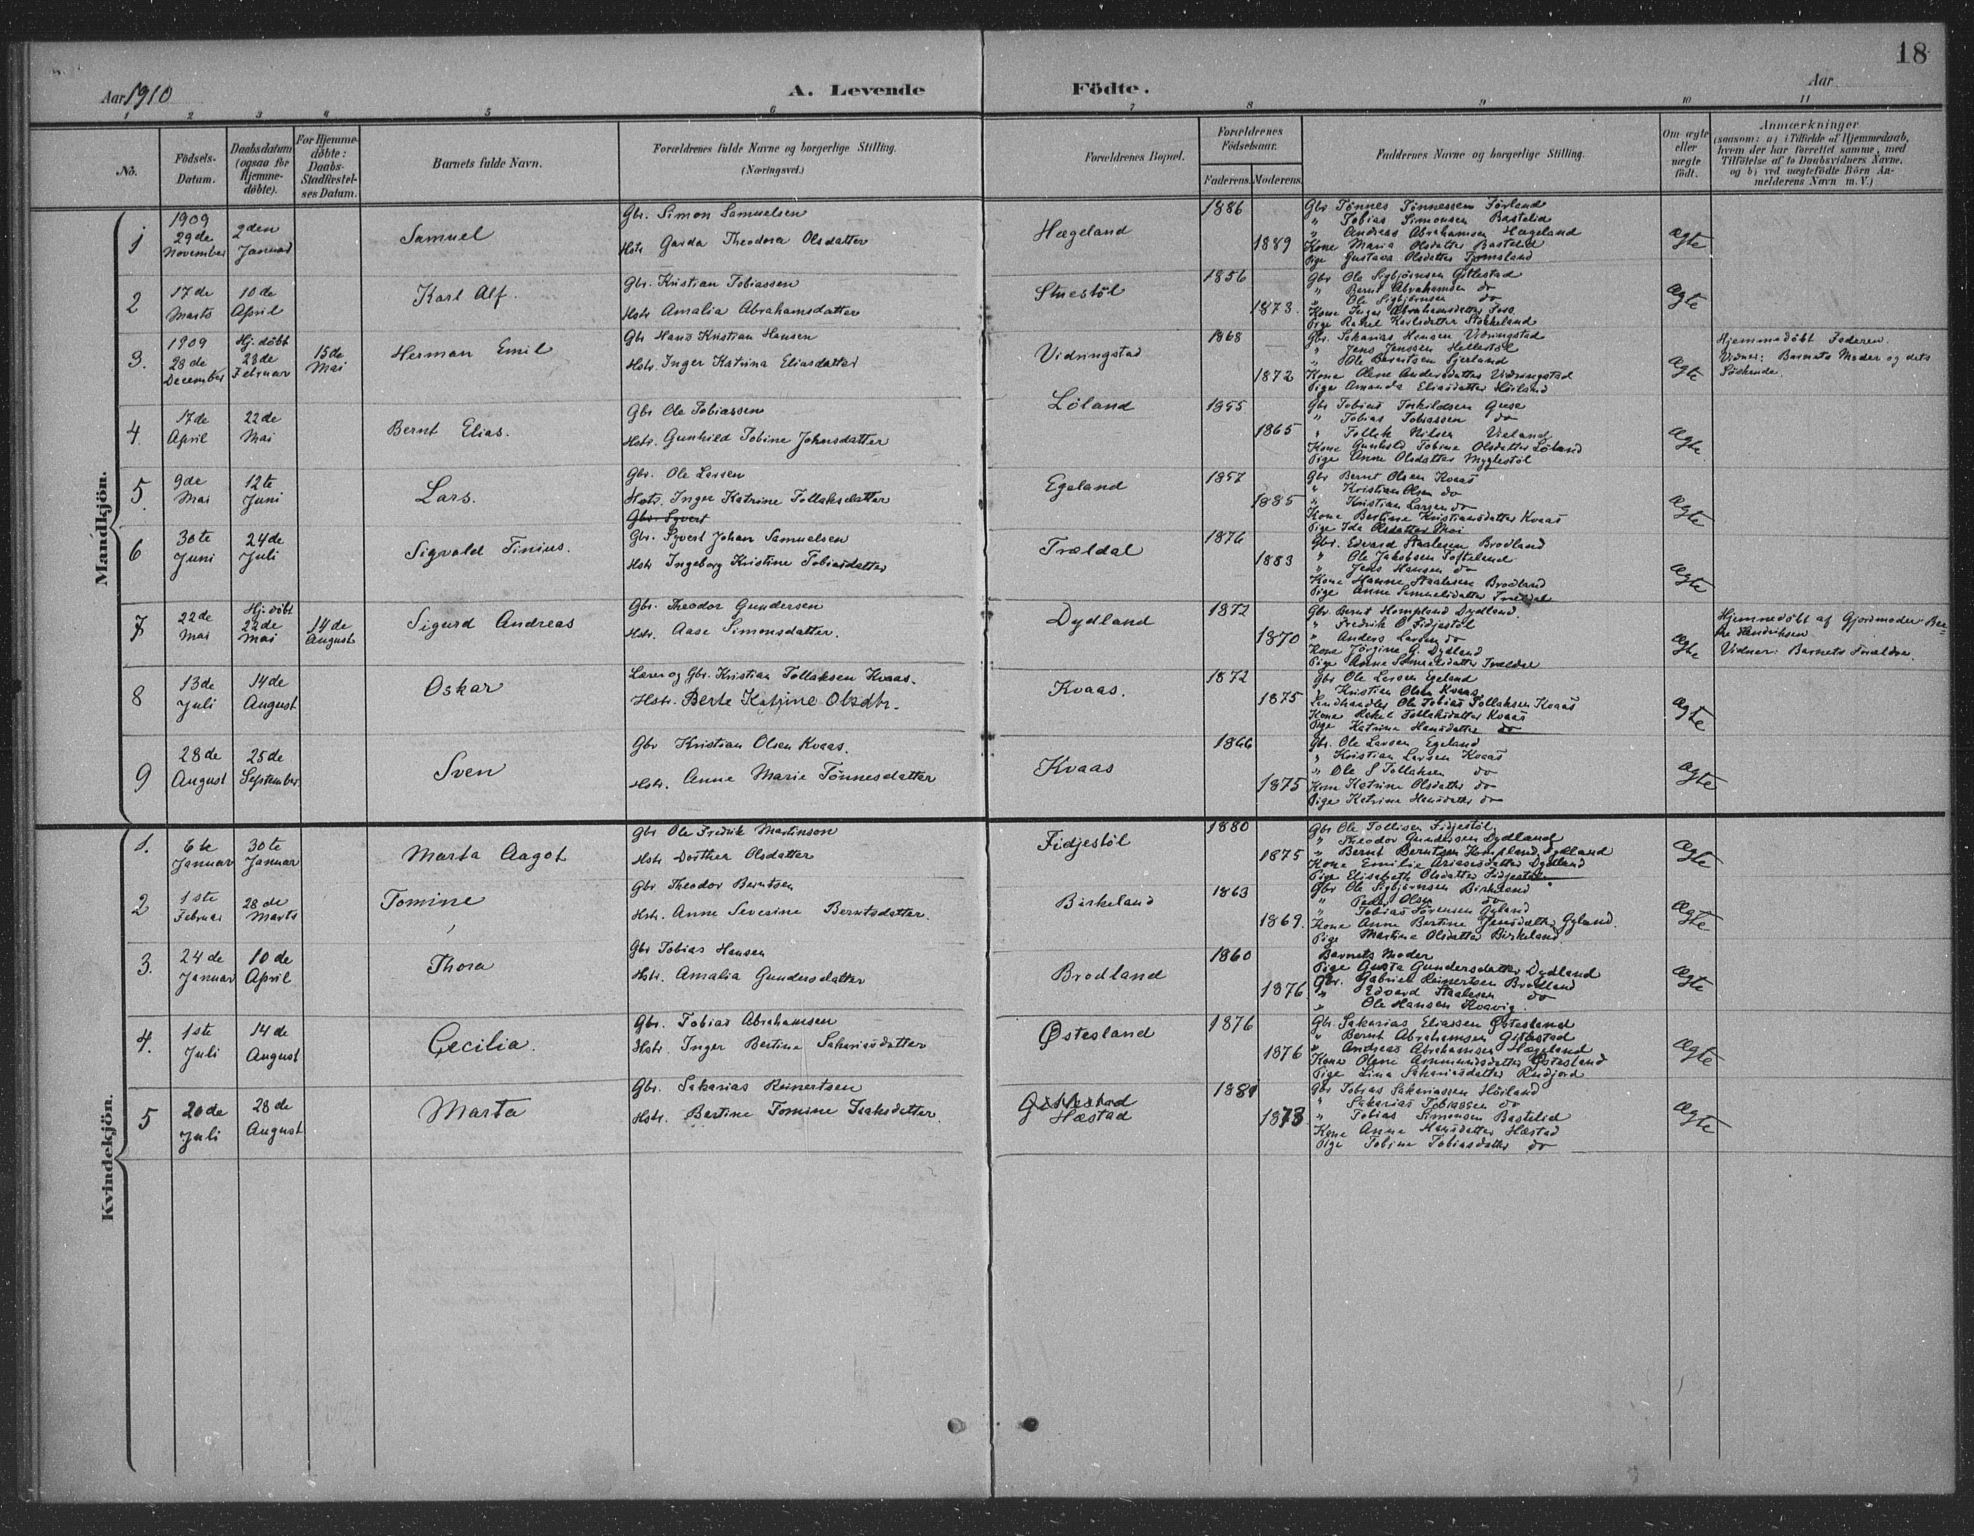 18
Aar 1910
A. Levende Födte.
Aar
1 2 3 4 5 6 7 8 9 10 11
No.
Födsels-Datum.
Daabsdatum (ogsaa for Hjemme-döbte).
For Hjemme-döbte: Daabs-Stadfæstel-ses Datum.
Barnets fulde Navn.
Forældrenes fulde Navne og borgerlige Stilling. (Næringsvei.)
Forældrenes Bopæl.
Forældrenes Födselsaar.
Faderens. Moderens.
Faddernes Navne og borgerlige Stilling.
Om ægte eller uægte födt.
Anmærkninger
(saasom: a) i Tilfælde af Hjemmedaab, hvem der har forrettet samme, med Tilföielse af to Daabsvidners Navne, og b) ved uægtefödte Börn An-melderens Navn m. V.)
Mandkjön.
1 1909 29de November 2den Januar Samuel
Gbr. Simon Samuelsen
Hstr. Garda Theodora Olsdatter
Hægeland 1886 1889
Gbr Tønnes Tønnessen Førland
" Tobias Simonsen Bastelid
" Andreas Abrahamsen Hægeland
Kone Maria Olsdatter Bastelid
Pige Gustava Olsdatter
ægte
2 17de Marts 10de April Karl Alf.
Gbr. Kristian Tobiassen
Hstr Amalia Abrahamsdatter
Stuestøl 1856 1873.
Gbr Ole Sigbjørnsen Gitlestad
" Bernt Abrahamsen do
" Ole Sigbjørnsen do
Kone Inger Abrahamsdatter Foss
Pige Rakel Karlsdatter Stokkeland
ægte
3. 1909 28de December Hj. døbt 23de Februar 15de Mai Herman Emil
Gbr Hans Kristian Hansen
Hstr. Inger Katrina Eliasdatter
Vidringstad 1868 1872
Gbr. Sakarias Hansen Vidringstad
" Jens Jenssen Hellestøl
" Ole Berntsen Gjerland
Kone Oline Andersdatter Vidringstad
Pige Amanda Eliasdatter Høiland
ægte
Hjemmedøbt Faderen.
Vidner: Barnets Moder og dets
Søskende.
4. 17de April 22de Mai Bernt Elias.
Gbr Ole Tobiassen
Hstr. Gunhild Tobine Johnsdatter
Løland 1855 1865
Gbr Tobias Torkildsen Guse
" Tobias Tobiassen do
" Tollek Nilsen Vieland
Kone Gunhild Tobine Olsdatter Løland
Pige Anne Olsdatter Myglestøl
ægte.
5. 9de Mai 12te Juni Lars.
Gbr. Ole Larsen
Hstr. Inger Katrine Tollaksdatter
Gbr. Syvert
Egeland 1857 1885
Gbr Bernt Olsen Kvaas
" Kristian Olsen do
" Kristian Larsen do
Kone Bertine Kristiansdatter Kvaas
Pige Ida Olsdatter Moi
ægte
6 30te Juni 24de Juli Sigvald Tinius.
Gbr. Syvert Johan Samuelsen
Hstr Ingeborg Kristine Tobiasdatter
Trældal 1876 1883
Gbr. Edvard Staalesen Brodland
" Ole Jakobsen Tofteland
" Jens Hansen do
Kone Hanne Staalesen Brodland
Pige Anne Samuelsdatter Trældal
ægte
7 22de Mai Hj. døbt 22de Mai 14de August Sigurd Andreas
Gbr. Theodor Gundersen
Hstr. Aase Simonsdatter.
Dydland 1872 1870
Gbr Bernt Kompland Dydland.
" Fredrik O Fidjestøl
" Anders Larsen do
Kone Jørgine G. Dydland
Pige Anne Samuelsdatter Trældal
ægte
Hjemmedøbt af Gjordmoder Ber-
Hendriksen
Vidner: Barnets Forældre.
8 13de Juli 14de August Oskar
Lærer og Gbr. Kristian Tollaksen Kvaas.
Hstr. Berte Katrine Olsdtr.
Kvaas. 1872 1875
Gbr Ole Larsen Egeland
" Kristian Olsen Kvaas
Landhandler Ole Tobias Tollaksen Kvaas
Kone Rakel Tollaksdatter Kvaas
Pige Katrine Hansdatter do
ægte
9 28de August 25de September Sven
Gbr Kristian Olsen Kvaas.
Hstr. Anne Marie Tønnesdatter
Kvaas 1866 1875
Gbr. Ole Larsen Egeland
" Kristian Larsen Kvaas
" Ole S Tollaksen do
Kone Katrine Olsdatter do
Pige Katrine Hansdatter do
ægte
Kvindekjön.
1. 6te Januar 30te Januar Marta Aagot
Gbr Ole Fredrik Martinson
Hstr Dorthea Olsdatter
Fidjestøl 1880 1875
Gbr Ole Tollisen Fidjestøl
" Theodor Gundersen Dydland
" Bernt Berntsen Kompland Dydland
Kone Emilie Ariasdatter Dydland
Pige Elisabeth Olsdatter Fidjestøl
ægte
2 1ste Februar 28de Marts Tomine
Gbr Theodor Berntsen
Hstr. Anne Severine Berntsdatter.
Birkeland 1863 1869.
Gbr Ole Sigbjørnsen Birkeland
" Peder Olsen do
" Tobias Sørensen Gyland
Kone Anne Bertine Jensdatter Gyland.
Pige Martine Olsdatter Birkeland
ægte
3. 24de Januar 10de April Thora
Gbr Tobias Hansen
Hstr. Amalia Gundersdatter
Brodland 1860 1876
Barnets Moder
Pige Gusta Gundersdatter Dydland
Gbr. Gabriel Reinertsen Brodland
" Edvard Staalesen do
" Ole Hansen Kvavig
ægte
4. 1ste Juli 14de August Cecilia.
Gbr. Tobias Abrahamsen
Hstr. Inger Bertine Sakariasdatter
Østesland 1876 1876
Gbr Sakarias Eliassen Østesland
" Bernt Abrahamsen Gitlestad
" Andreas Abrahamsen Hægeland
Kone Olene Ammunsdatter Østesland
Pige Lina Sakariasdatter Rudjord
ægte
5 20de Juli 28de August Marta
Gbr. Sakarias Reinertsen
Hstr. Bertine Tomine Isaksdatter.
Gitlestad
Hæstad 1881 1873
Gbr Tobias Sakariassen Høiland
" Sakarias Tobiassen do
" Tobias Simonsen Bastelid
Kone Anne Hansdatter Hæstad
Pige Tobine Tobiasdatter do
ægte